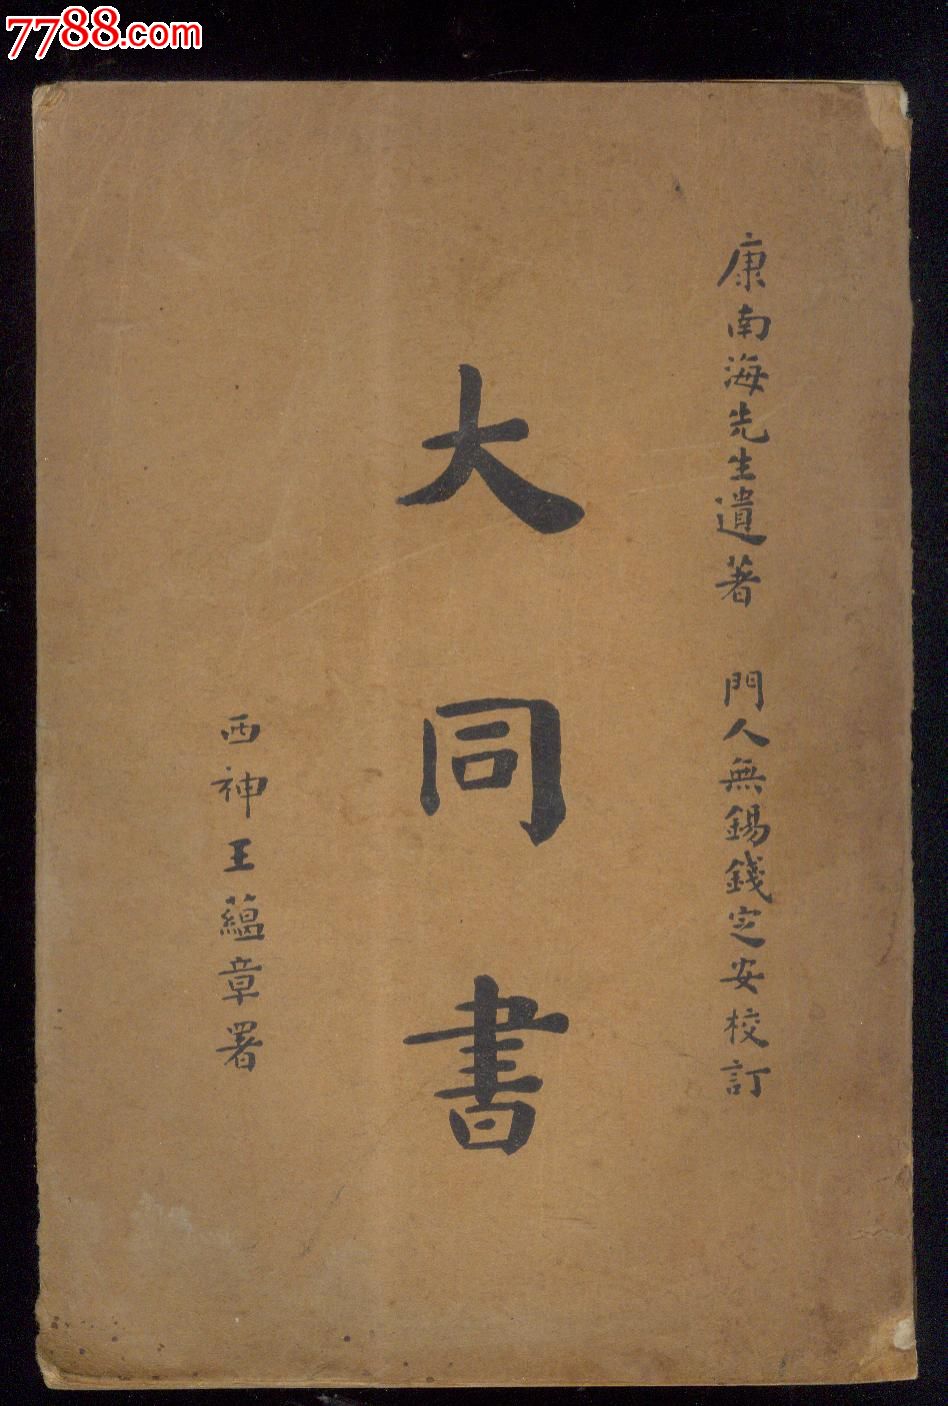 7788.com
康南海先生遺著 門人無錫錢定安校訂
大同書
西神王蘊章署